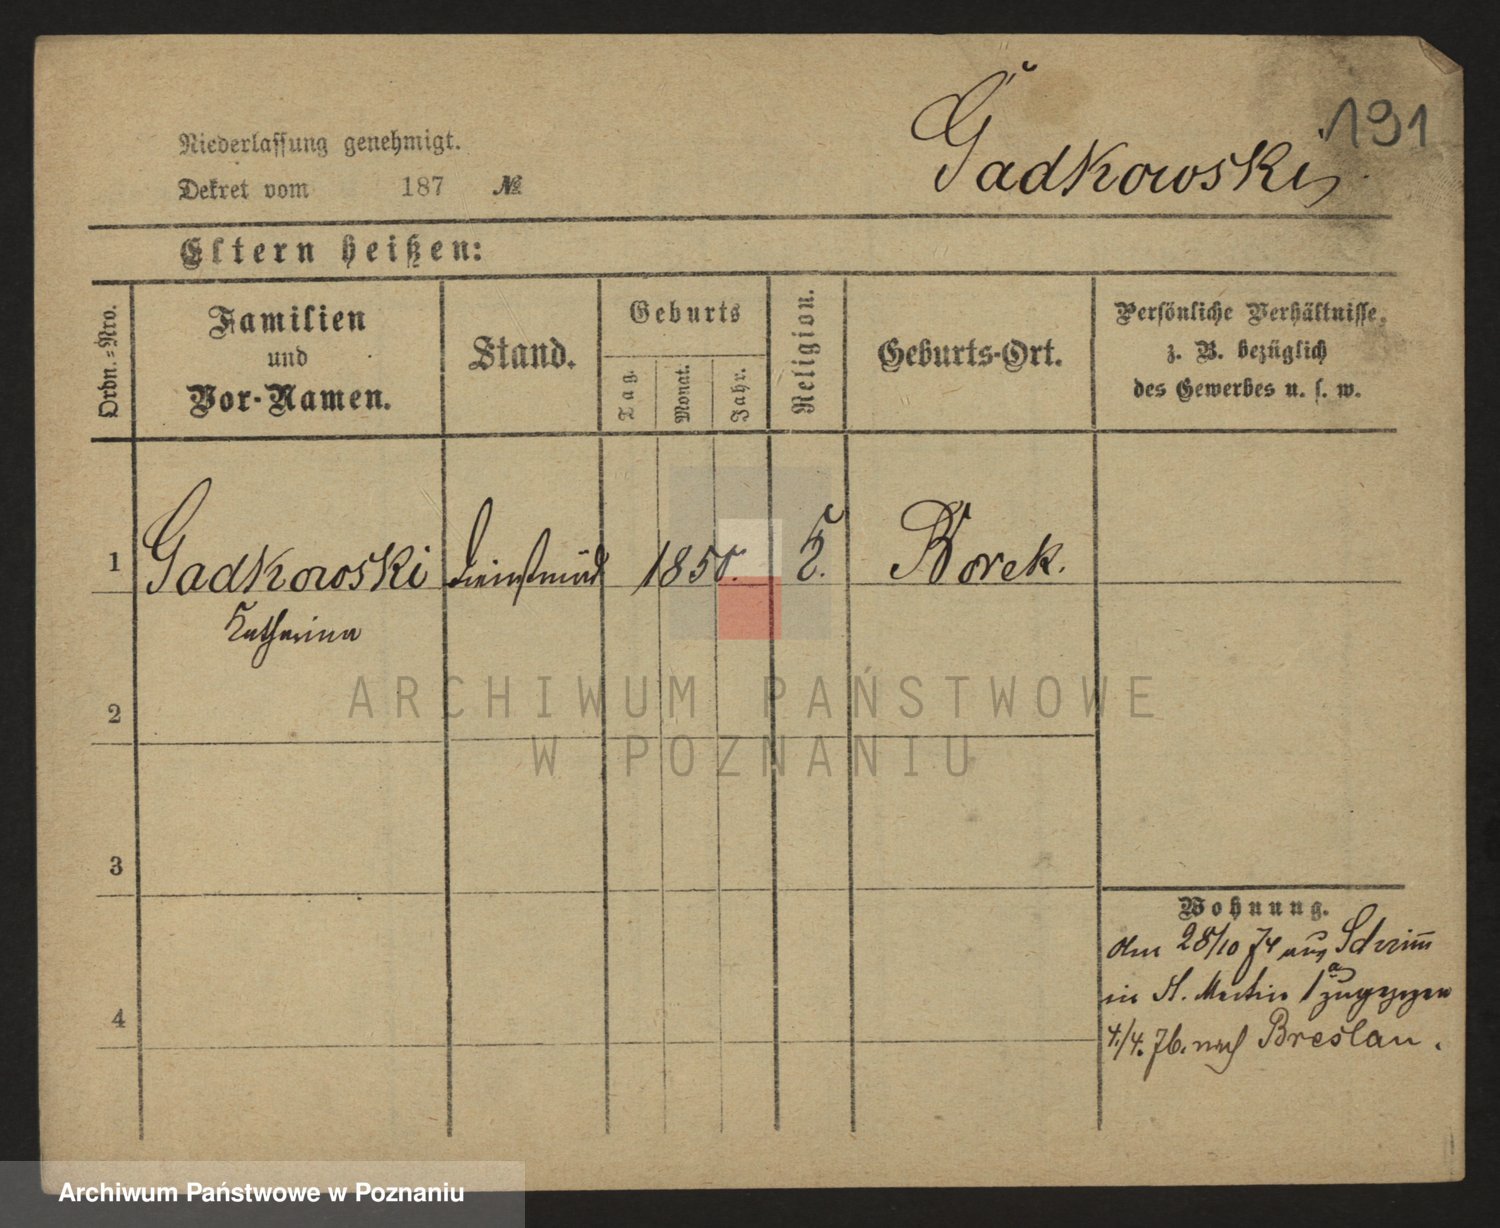 191
Gadkowski
Niederlassung genehmigt.
Dekret vom 187 №
Eltern heißen:
Ordn.-Nro.
Familien
und
Vor-Namen.
Stand.
Geburts
Tag.
Monat.
Jahr.
Religion.
Geburts-Ort.
Persönliche Verhältnisse,
z. B. bezüglich
des Gewerbes u. s. w.
1 Gadkowski 1850. Borek.
Katharina
2
ARCHIWUM PAŃSTWOWE
W POZNANIU
3
Wohnung.
den 28/10 74 aus Schrimm
in St. Martin 1 a zugezogen
4./4. 76. nach Breslau.
4
Archiwum Państwowe w Poznaniu